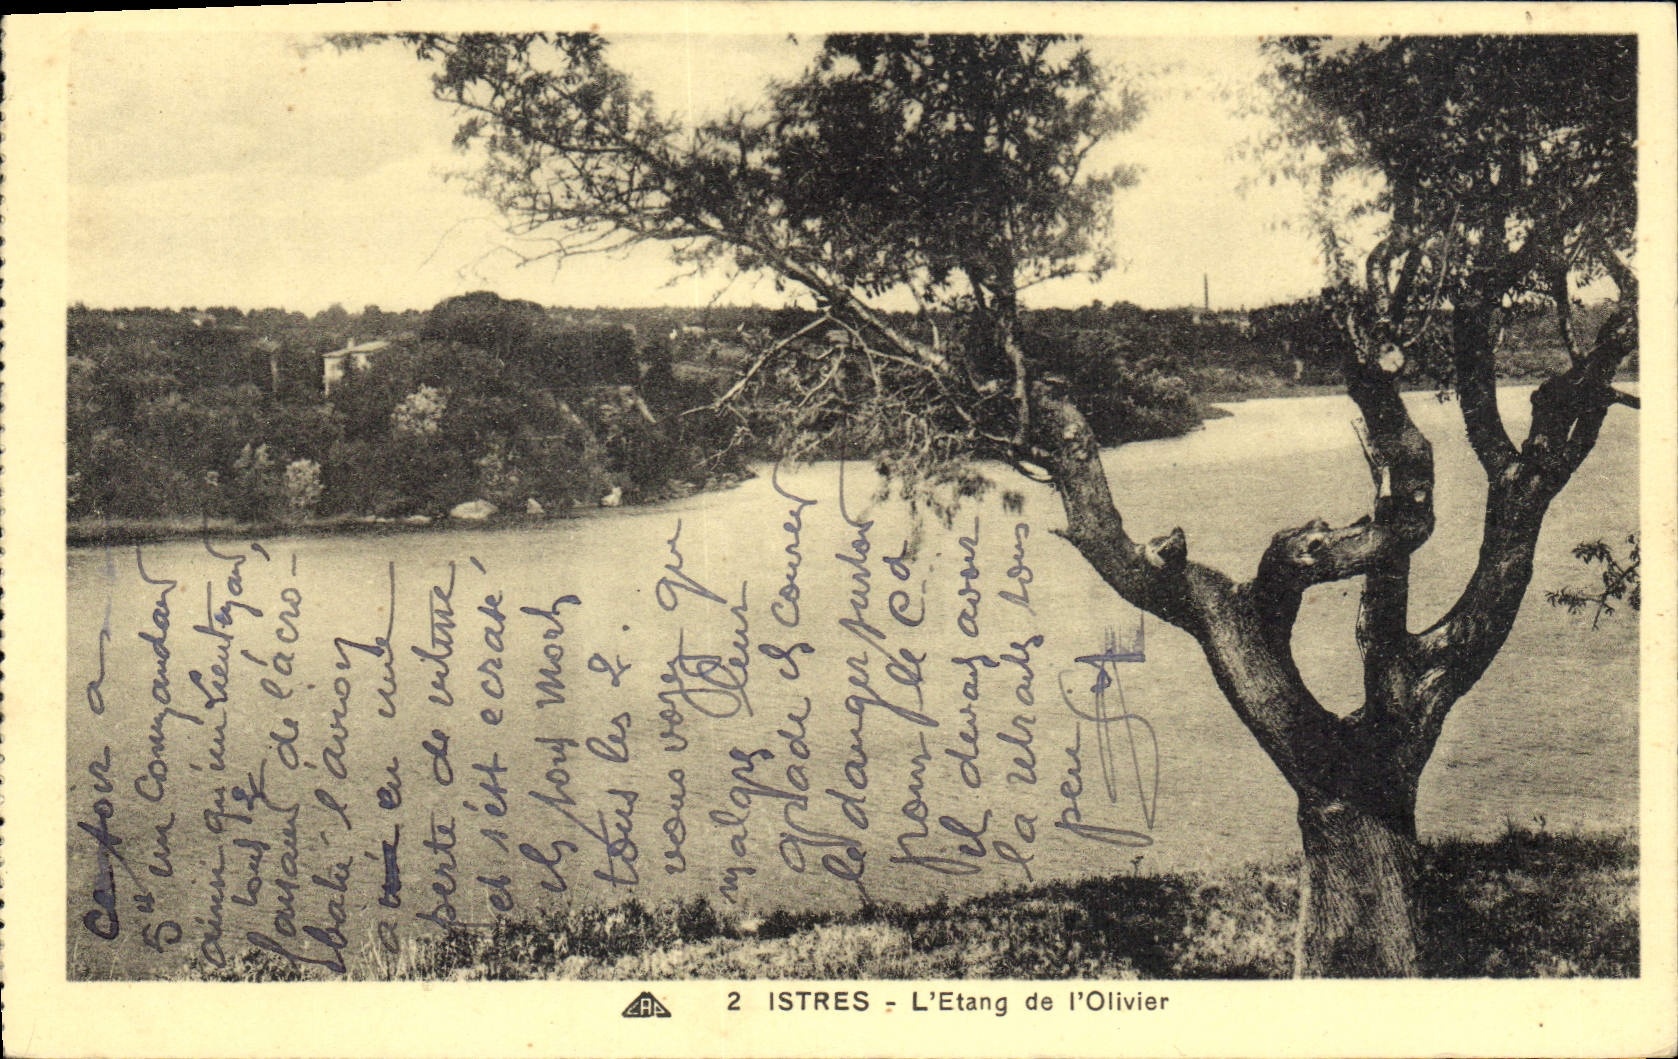 ce soir a
5h un Commandant
ainsi qu'un Lieutenant,
tous 2
faisant de l'acro-
batie l'avion
a eu une
perte de vitesse
et s'est ecrasé,
ils sont morts
tous les 2.
vous voyez que
malgré leur
grade ils courent
le danger surtout
pour le
il devrait avoir
la tous
peu
2 ISTRES - L'Etang de l'Olivier
CAP